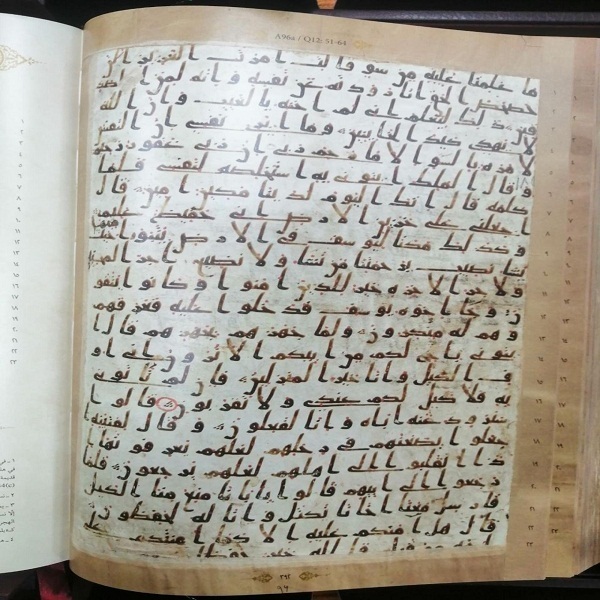 A96a / Q12: 51-64
ما علمنا عليه من سو قالت امرت العزيز الن
حصحص الحق انا رودته عن نفسه وانه لمن الصد
قين ذلك ليعلم اني لم اخنه بالغيب وان الله
لا يهدي كيد الخاينين وما ابري نفسي ان النفس
لامره بالسو الا ما رحم ربي ان ربي غفور رحيم
وقال الملك ايتوني به استخلصه لنفسي فلما
كلمه قال انك اليوم لدينا مكين امين قال
اجعلني على خزين الارض اني حفيظ عليم
وكذلك مكنا ليوسف في الارض يتبوا حيث
يشا نصيب برحمتنا من نشا ولا نضيع اجر المحسنين
ولاجر الاخره خير للذين امنوا وكانوا يتقو
ن وجا اخوه يوسف فدخلوا عليه فعرفهم
وهم له منكرون ولما جهزهم بجهزهم قال ا
يتوني باخ لكم من ابيكم الا ترون اني او
في الكيل وانا خير المنزلين فان لم تاتوني
به فلا كيل لكم عندي ولا تقربون قالوا
سنرود عنه اباه وانا لفعلون وقال لفتيته ا
جعلوا بضعتهم في رحلهم لعلهم يعرفونها ا
ذا انقلبوا الى اهلهم لعلهم يرجعون فلما
رجعوا الى ابيهم قالوا يابانا منع منا الكيل
فارسل معنا اخانا نكتل وانا له لحفظون
قال هل امنكم عليه الا كما امنتكم على
اخيه من قبل فالله خير حفظا
٢٩١